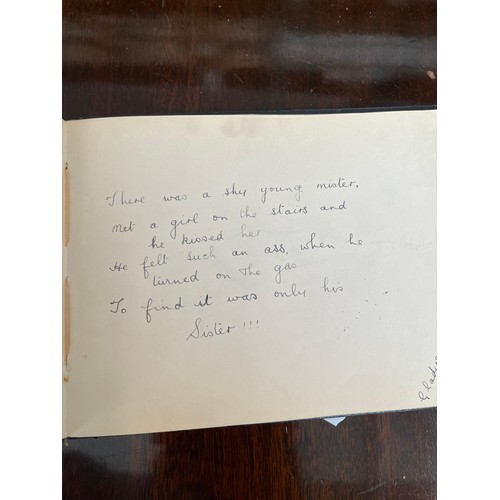 There was a shy young mister,
Met a girl on the stairs and
he kissed her
He felt such an ass, when he
turned on the gas
To find it was only his
Sister!!!